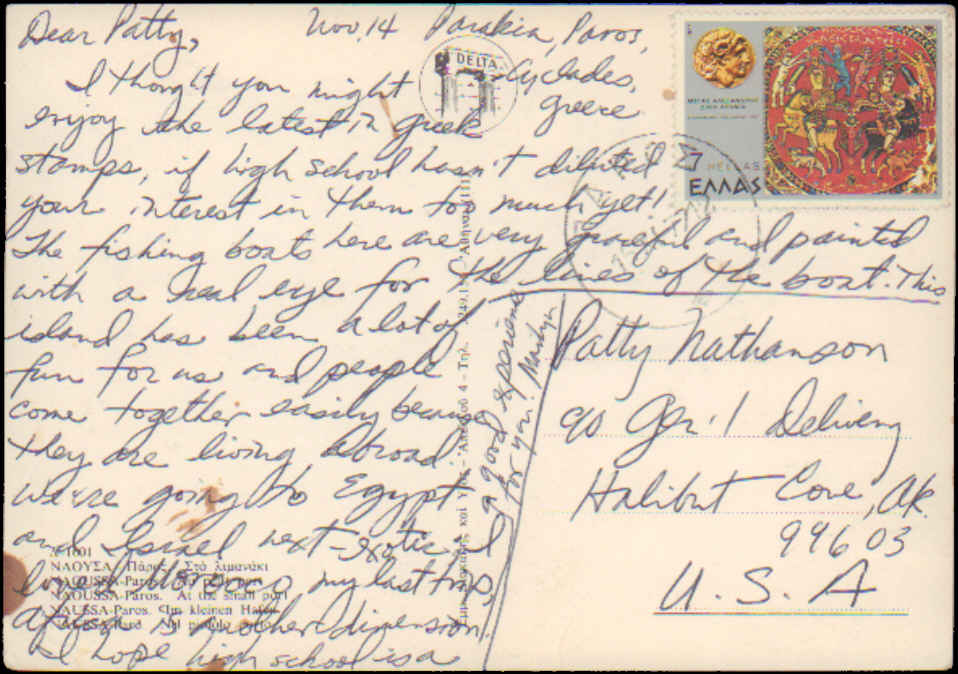 Dear Patty, Nov, 14 Parakia, Paros,
Cyclades,
Greece
I thought you might
enjoy the latest in greek
stamps, if high school hasn't diluted
your interest in them too much yet!
The fishing boats here are very graceful and painted
with a real eye for the lines of the boat. This
island has been a lot of
fun for us and people
come together easily because
they are living abroad.
We're going to Egypt
and Israel next-exotic. I
loved my last trip,
Africa is another dimension.
I hope high school is a
a good experience
for you! Marilyn
Patty Nathanson
c/o Gen'l Delivery
Halibut Cove, Ak.
99603
U. S. A
DELTA
ΗΕLLAS
ΕΛΛΑΣ
ΝΑΟΥΣΑ - Πάρος. Στό λιμανάκι
NAOUSSA-Paros.
NAOUSSA-Paros. At the small port
NAUSSA-Paros. Im kleinen Hafen